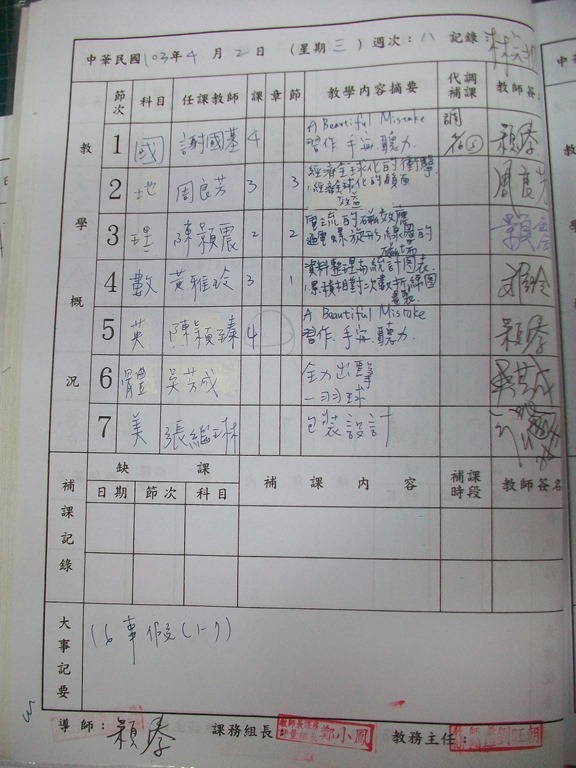 中華民國103年4月2日 (星期三) 週次:八 記錄:
節次 科目 任課教師 課 章 節 教學內容摘要 代調補課 教師簽名
教學概況
1 國 謝國基 4 A Beautiful Mistake 調
習作.手寫.聽力. 穎蓁
2 地 周良芳 3 3 經濟全球化的衝擊. 周良芳
經濟全球化的顏面
效益
3 理 陳穎震 2 2 電流的磁效應
通電螺旋形線圈的
磁場
4 數 黃雅玲 3 1 資料整理與統計圖表. 雅玲
累積相對次數折線圖
5 英 陳穎臻 4 A Beautiful Mistake
習作.手寫.聽力. 穎蓁
6 體 吳芳成 全力出擊 吳芳成
—羽球
7 美 張繼琳 包裝設計
補課記錄
缺課 補課內容 補課時段 教師簽名
日期 節次 科目
大事記要
16事假(1-7)
導師: 穎蓁 課務組長 鄭小鳳 教務主任: 劉旺朝